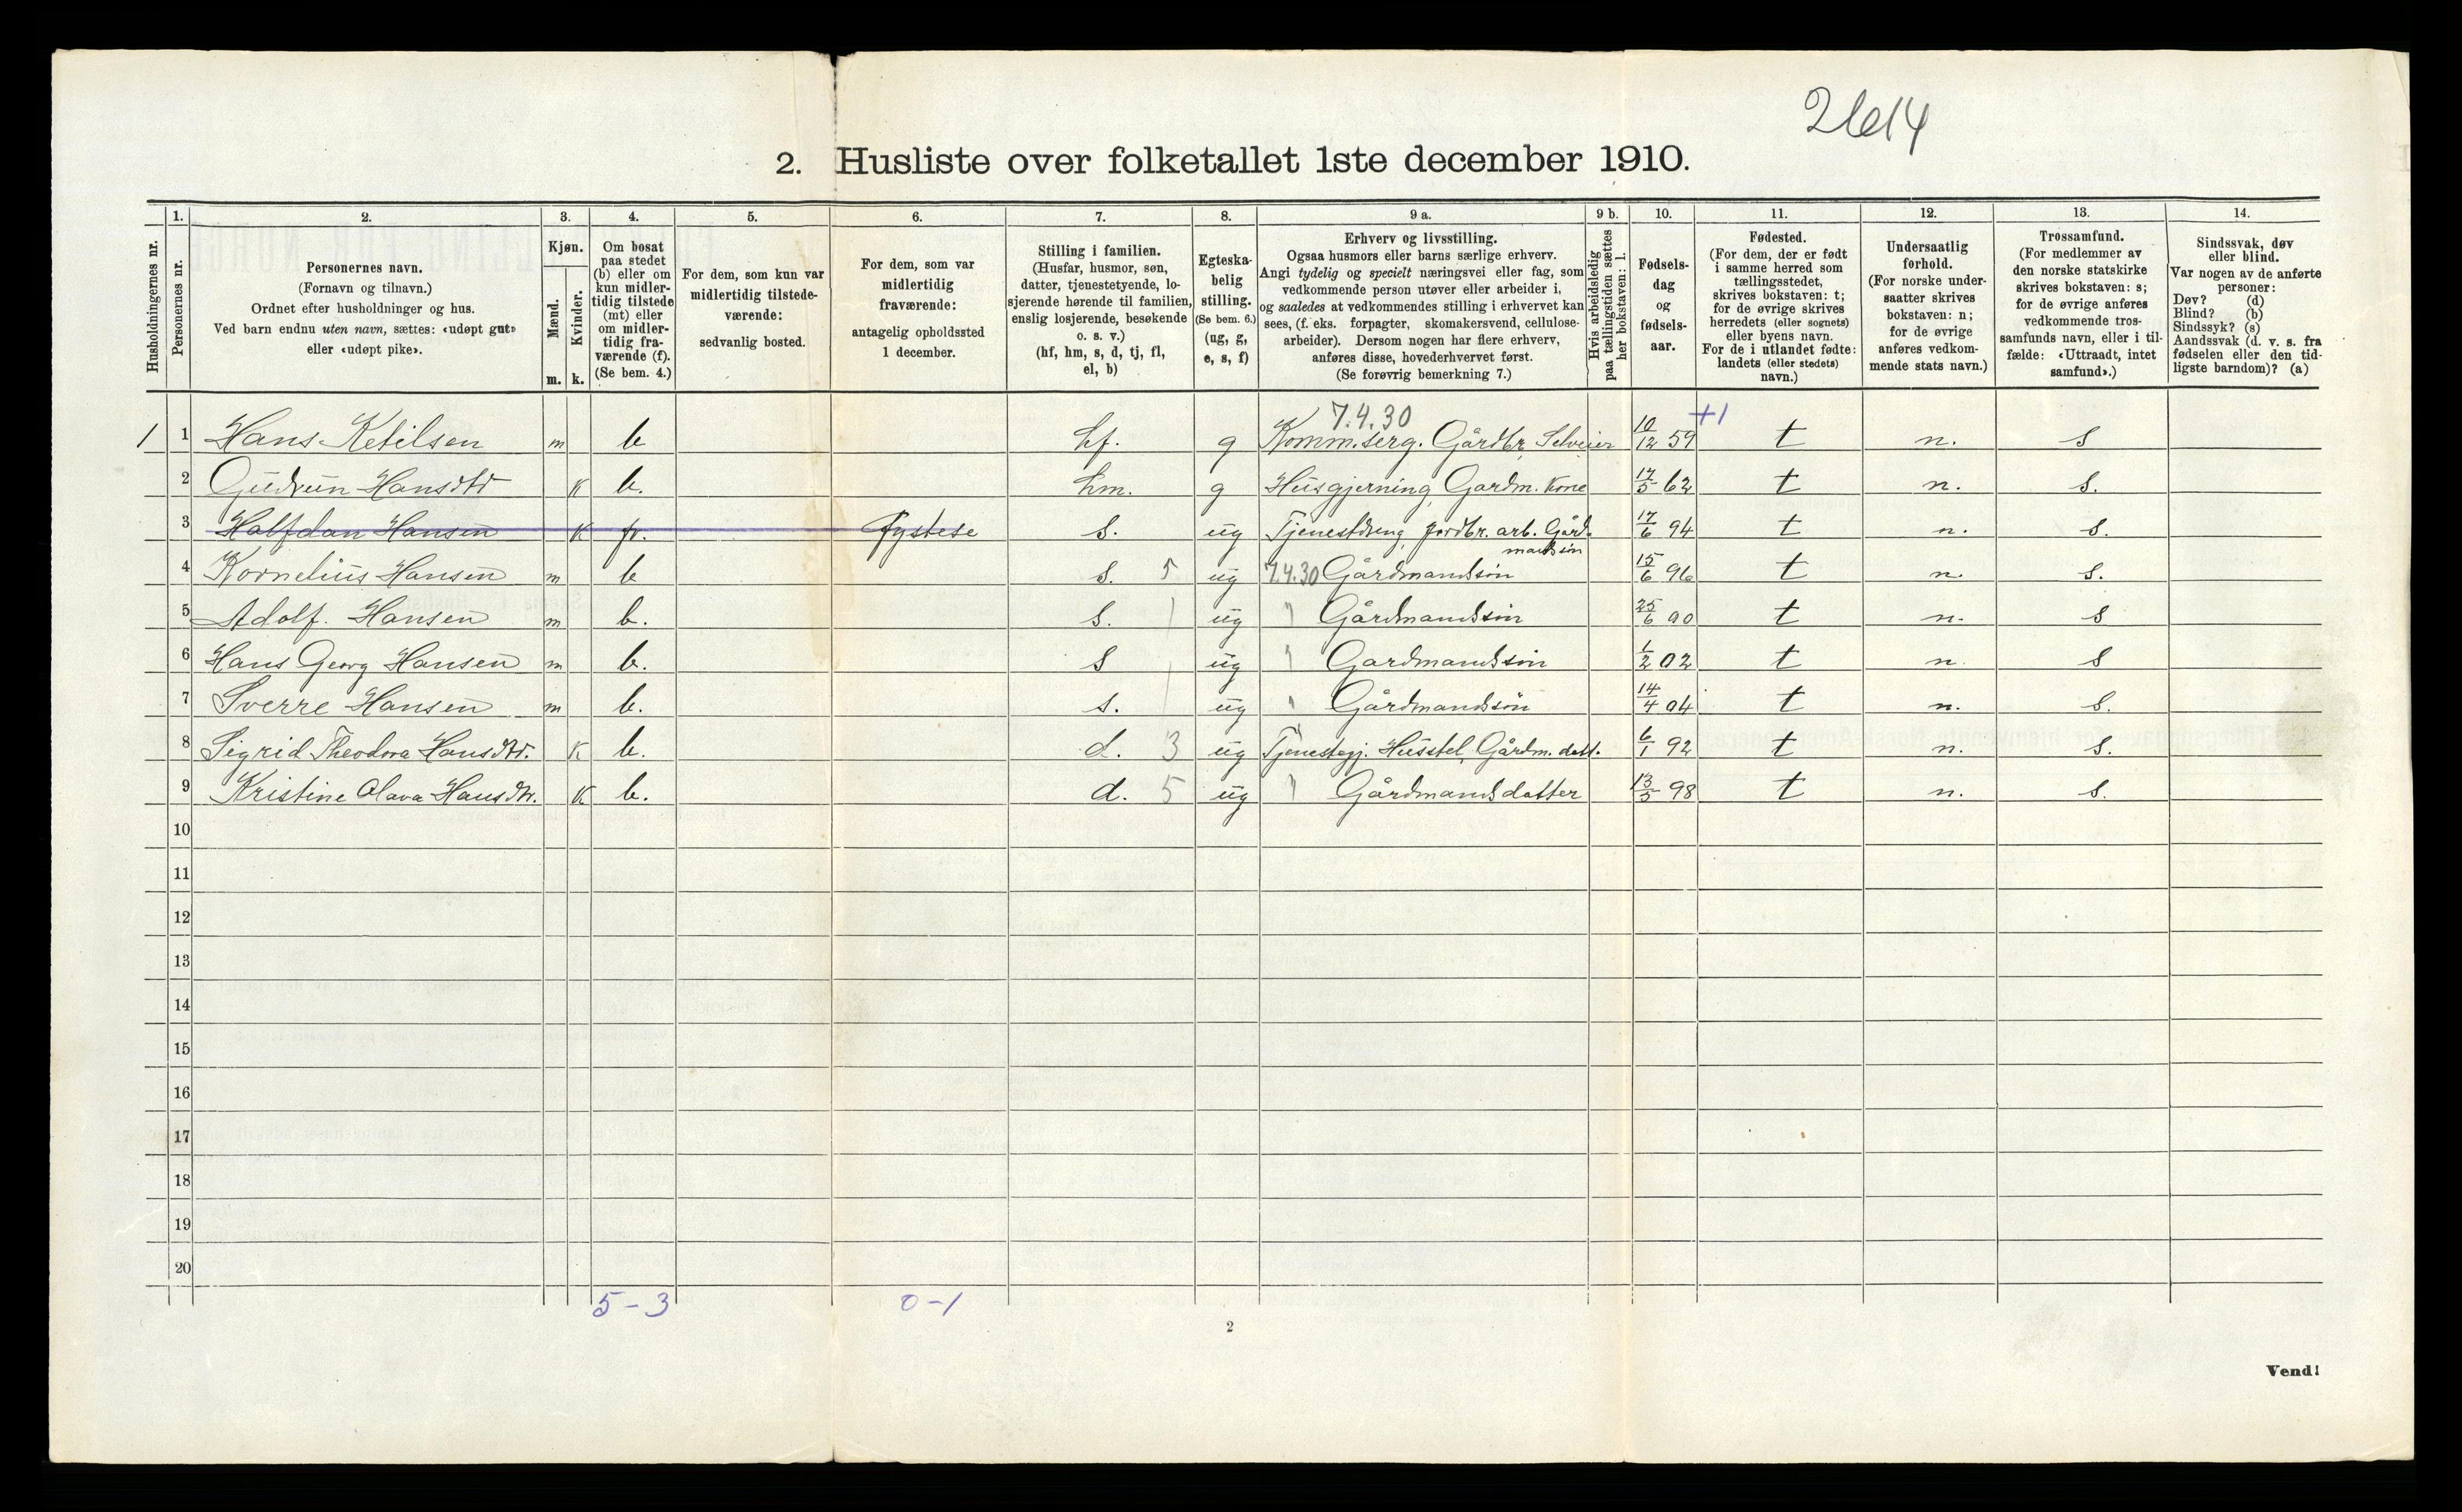 2614
2. Husliste over folketallet 1ste december 1910.
Husholdningernes nr.
1. Personernes nr.
2. Personernes navn. (Fornavn og tilnavn.) Ordnet efter husholdninger og hus. Ved barn endnu uten navn, sættes: «udøpt gut» eller «udøpt pike».
3. Kjøn. Mænd. m. Kvinder. k.
4. Om bosat paa stedet (b) eller om kun midlertidig tilstede (mt) eller om midlertidig fraværende (f). (Se bem. 4.)
5. For dem, som kun var midlertidig tilstedeværende: sedvanlig bosted.
6. For dem, som var midlertidig fraværende: antagelig opholdssted 1 december.
7. Stilling i familien. (Husfar, husmor, søn, datter, tjenestetyende, losjerende hørende til familien, enslig losjerende, besøkende o. s. v.) (hf, hm, s, d, tj, fl, el, b)
8. Egteskabelig stilling. (Se bem. 6.) (ug, g, e, s, f)
9 a. Erhverv og livsstilling. Ogsaa husmors eller barns særlige erhverv. Angi tydelig og specielt næringsvei eller fag, som vedkommende person utøver eller arbeider i, og saaledes at vedkommendes stilling i erhvervet kan sees, (f. eks. forpagter, skomakersvend, cellulosearbeider). Dersom nogen har flere erhverv, anføres disse, hovederhvervet først. (Se forøvrig bemerkning 7.)
9 b. Hvis arbeidsledig paa tællingstiden sættes her bokstaven: l.
10. Fødselsdag og fødselsaar.
11. Fødested. (For dem, der er født i samme herred som tællingsstedet, skrives bokstaven: t; for de øvrige skrives herredets (eller sognets) eller byens navn. For de i utlandet fødte: landets (eller stedets) navn.)
12. Undersaatlig forhold. (For norske undersaatter skrives bokstaven: n; for de øvrige anføres vedkommende stats navn.)
13. Trossamfund. (For medlemmer av den norske statskirke skrives bokstaven: s; for de øvrige anføres vedkommende trossamfunds navn, eller i tilfælde: «Uttraadt, intet samfund».)
14. Sindssvak, døv eller blind. Var nogen av de anførte personer: Døv? (d) Blind? (b) Sindssyk? (s) Aandssvak (d. v. s. fra fødselen eller den tidligste barndom)? (a)
7.4.30 +1
1 1 Hans Ketilsen m b hf. g Komm.serg. Gårdbr. Selveier 10/12 59 t n. s
2 Gudrun Hansdtr K b. hm. g Husgjerning Gardm. Kone 17/5 62 t n. s.
3 Halfdan Hansen K fr. Fystese s. ug Tjenestdreng jordbr. arb. Gårdmandssön 17/6 94 t n. s.
4 Kornelius Hansen m b s. 5 ug 7.4.30 Gårdmandssön 15/6 96 t n. s.
5 Adolf. Hansen m b. s. ug " Gårdmandssön 25/6 90 t n. s
6 Hans Georg Hansen m b. s ug " Gardmandssön 1/2 02 t n. s
7 Sverre Hansen m b. s. ug " Gårdmandssön 14/4 04 t n. s.
8 Sigrid Theodora Hansdtr. K b. d. 3 ug Tjenestegj. Husstel, Gårdm. datt. 6/1 92 t n. s.
9 Kristine Olava Hansdtr. K b. d. 5 ug " Gårdmandsdatter 13/5 98 t n. s.
10
11
12
13
14
15
16
17
18
19
20
5-3 0-1
2
Vend!